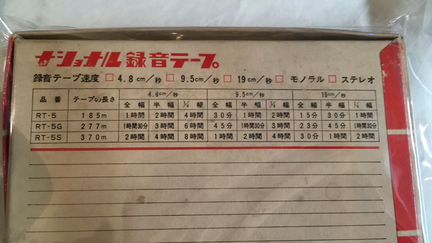 ナショナル録音テープ
録音テープ速度 □ 4.8cm/秒 □ 9.5cm/秒 □ 19cm/秒 □ モノラル □ ステレオ
品番 テープの長さ 4.8cm/秒 9.5cm/秒 19cm/秒
全幅 半幅 ¼幅 全幅 半幅 ¼幅 全幅 半幅 ¼幅
RT-5 185m 1時間 2時間 4時間 30分 1時間 2時間 15分 30分 1時間
RT-5G 277m 1時間30分 3時間 6時間 45分 1時間30分 3時間 23分 45分 1時間30分
RT-5S 370m 2時間 4時間 8時間 1時間 2時間 4時間 30分 1時間 2時間